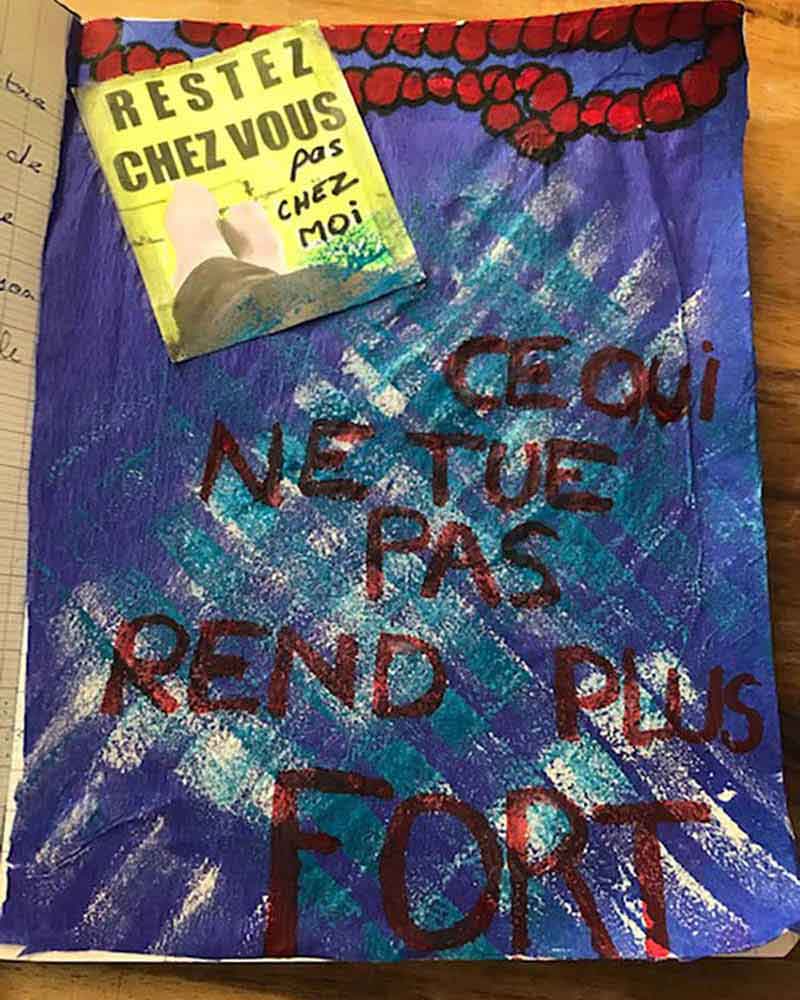 RESTEZ
CHEZ VOUS
pas
CHEZ
MOi
CE QUi
NE TUE
PAS
REND PLUS
FORT
de